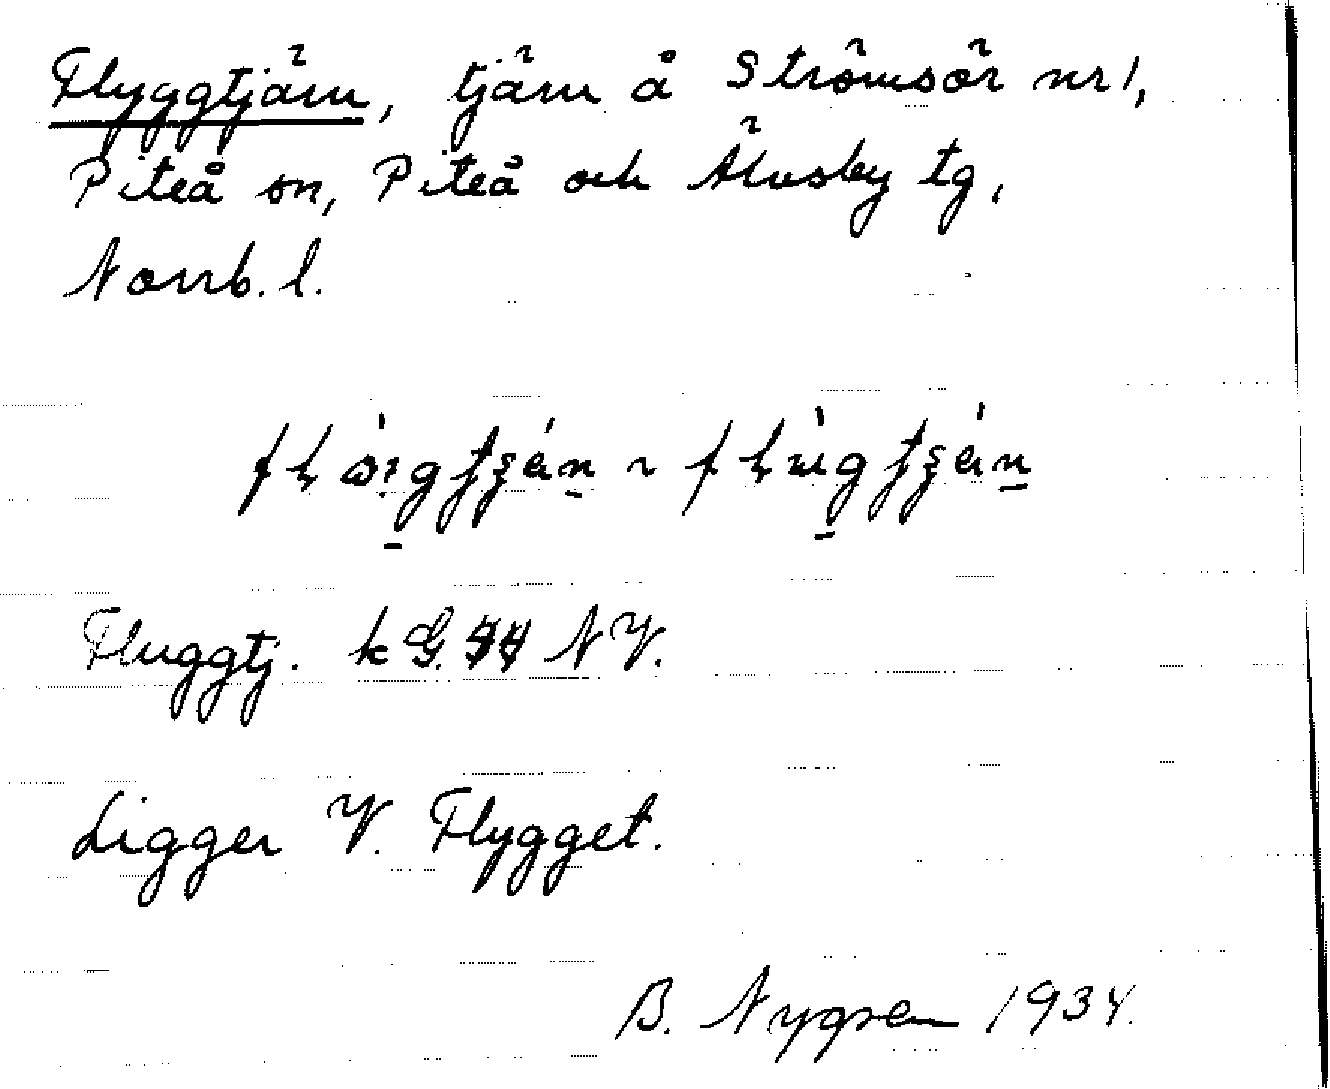 Flyggtjärn, tjärn å Strömsör nr 1,
Piteå sn, Piteå och Älvsby tg,
Norrb. l.
Fluggtj. k G. 44 NV.
Ligger V. Flygget.
B. Nygren 1934.